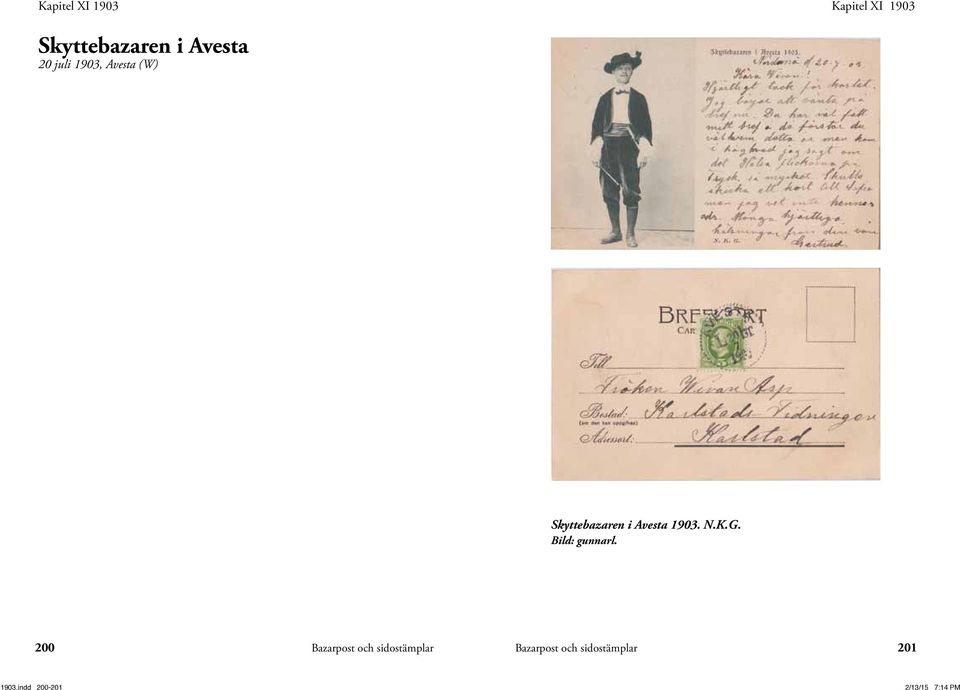 Kapitel XI 1903
Kapitel XI 1903
Skyttebazaren i Avesta
20 juli 1903, Avesta (W)
Skyttebazaren i Avesta 1903.
d/20-7-03.
Kära Wivan!
Hjärtligt tack för kortet.
Jag börjar att vänta på
bref nu. Du har väl fått
mitt bref o då förstår du
väl hvem detta är men kom
i håg hvad jag sagt om
det Hälsa flickorna på
Tryck. så mycket. Skulle
skicka ett kort till
men jag vet inte hennes
adr. Många hjärtliga
hälsningar från din vän
Gertrud.
N. K. G.
Till
Fröken Wivan Asp
Bostad: Karlstads-Tidningen
(om den kan uppgifvas)
Adressort: Karlstad
Skyttebazaren i Avesta 1903. N.K.G.
Bild: gunnarl.
200 Bazarpost och sidostämplar
Bazarpost och sidostämplar 201
1903.indd 200-201
2/13/15 7:14 PM